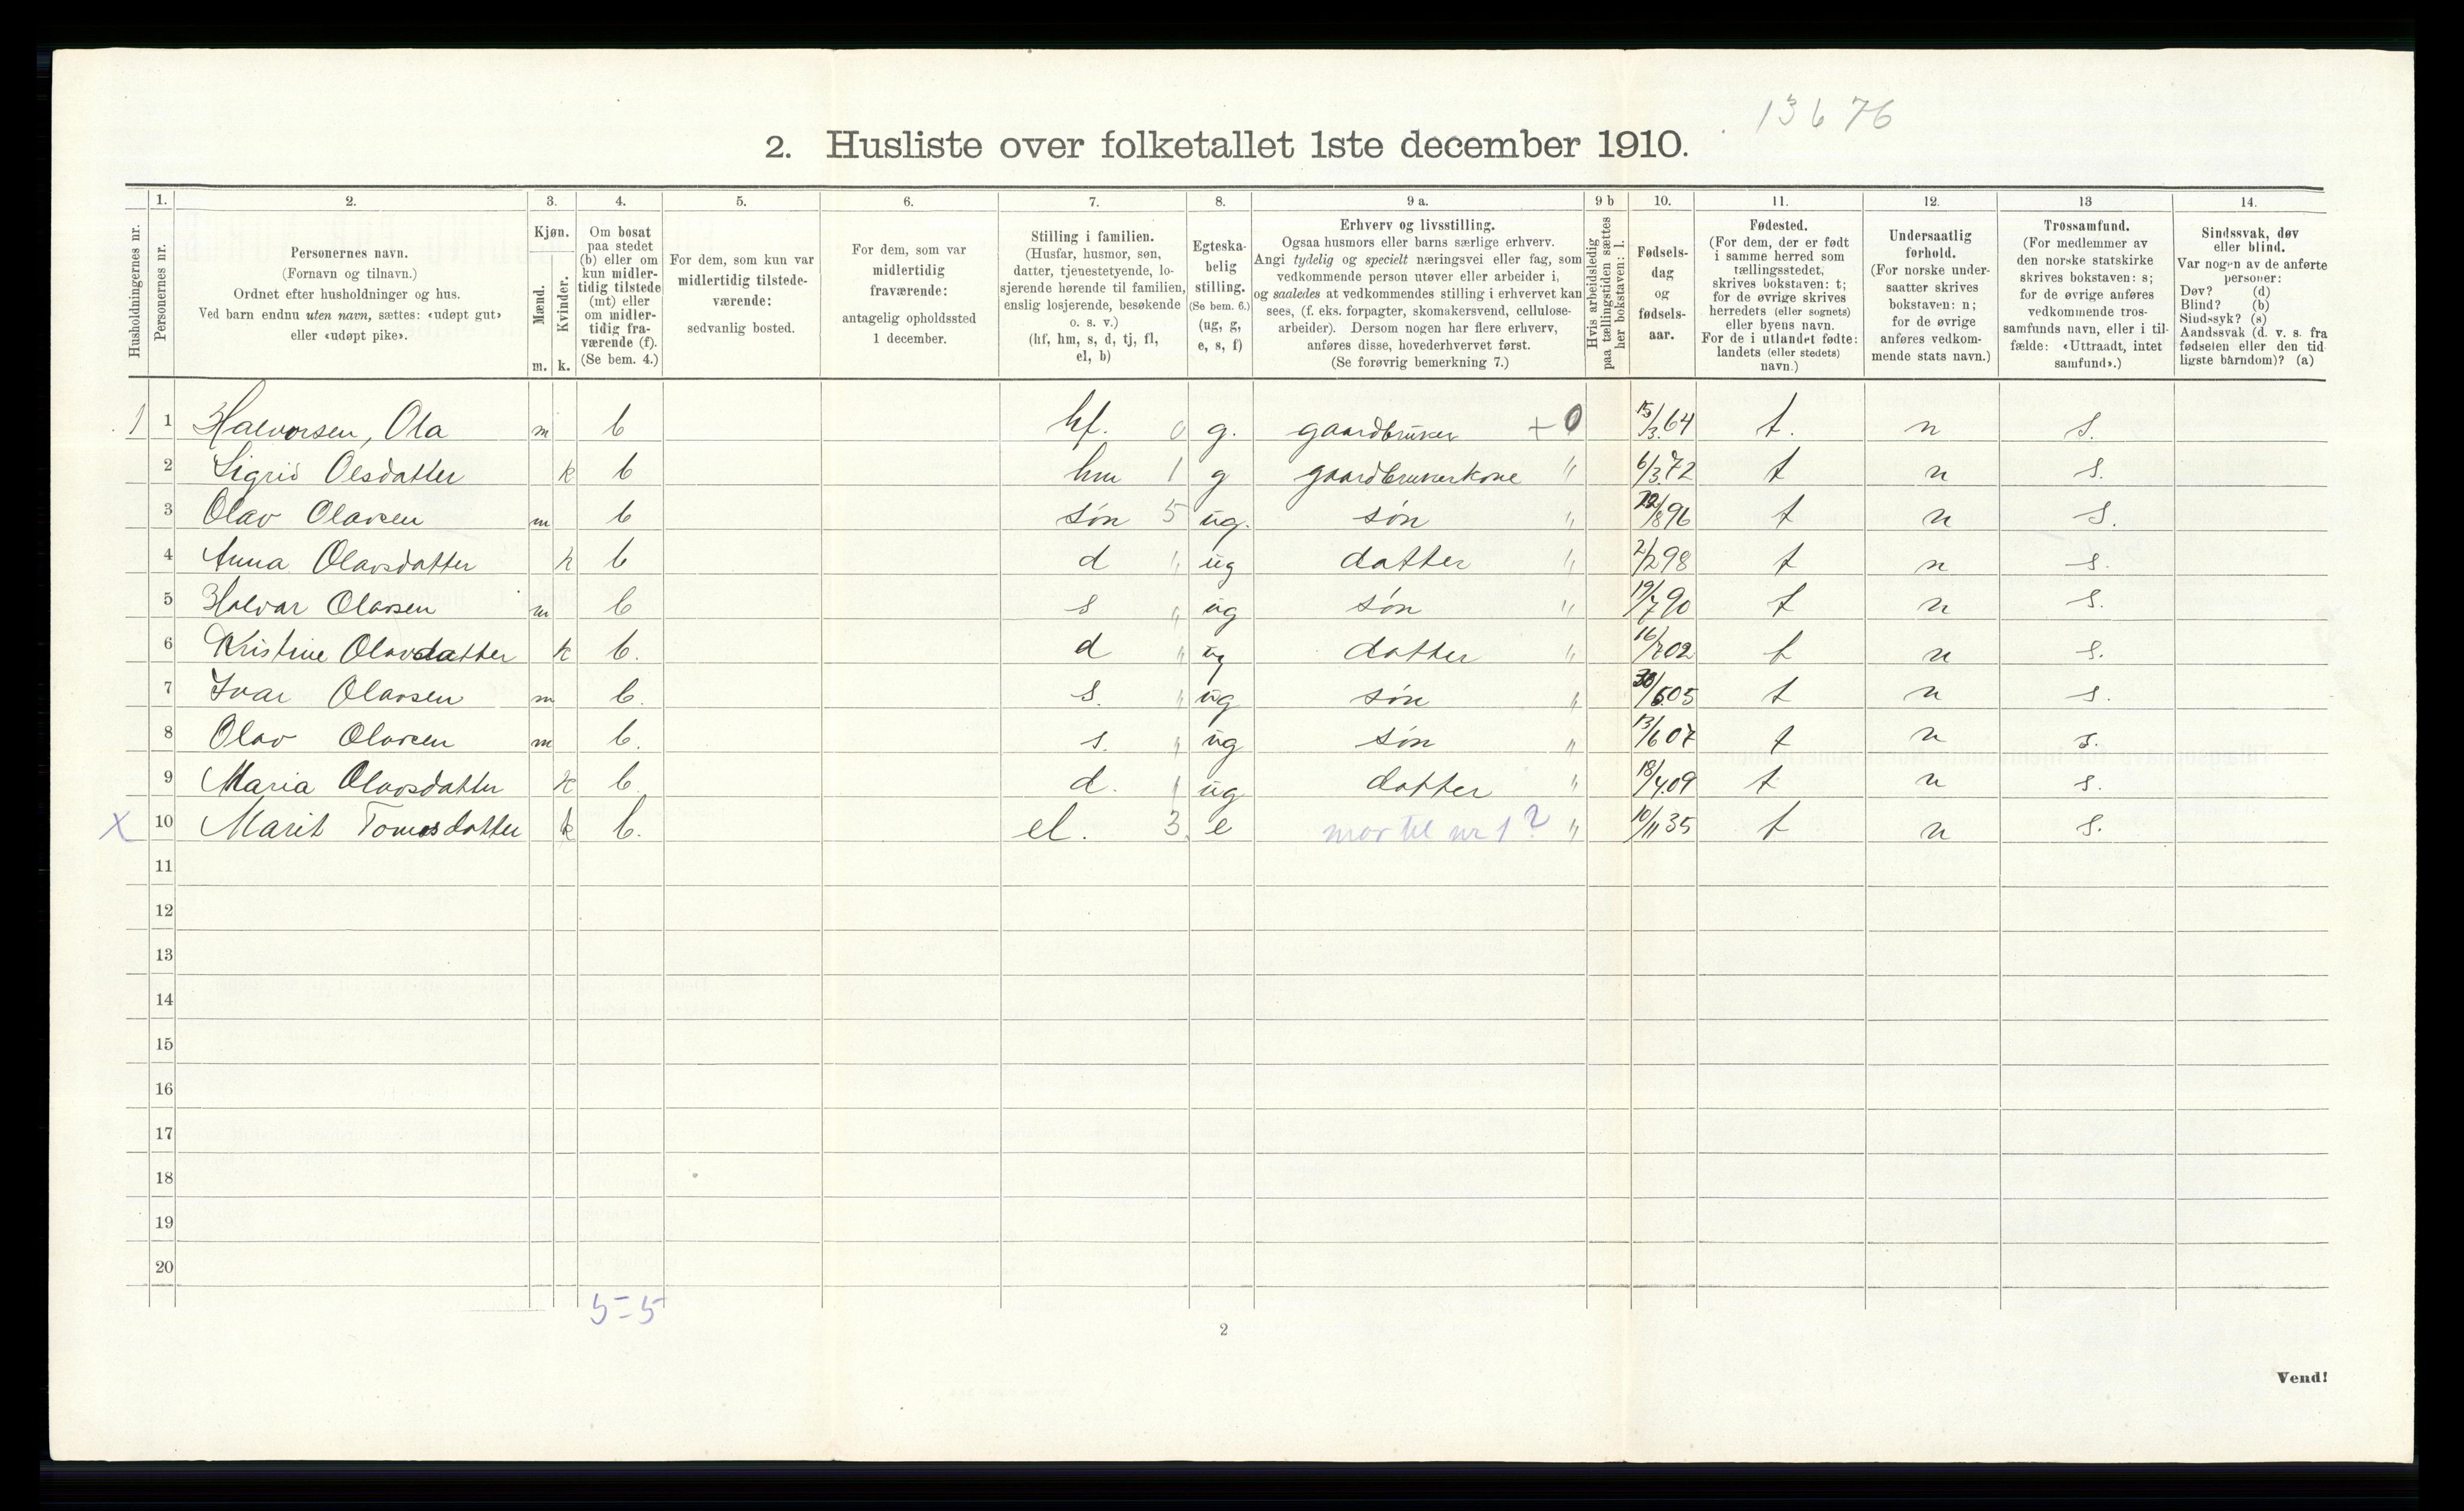 13676
2. Husliste over folketallet 1ste december 1910.
Husholdningernes nr.
1.
Personernes nr.
2.
Personernes navn.
(Fornavn og tilnavn.)
Ordnet efter husholdninger og hus.
Ved barn endnu uten navn, sættes: «udøpt gut»
eller «udøpt pike».
3.
Kjøn.
Mænd.
Kvinder.
m. k.
4.
Om bosat
paa stedet
(b) eller om
kun midler-
tidig tilstede
(mt) eller
om midler-
tidig fra-
værende (f).
(Se bem. 4.)
5.
For dem, som kun var
midlertidig tilstede-
værende:
sedvanlig bosted.
6.
For dem, som var
midlertidig
fraværende:
antagelig opholdssted
1 december.
7.
Stilling i familien.
(Husfar, husmor, søn,
datter, tjenestetyende, lo-
sjerende hørende til familien,
enslig losjerende, besøkende
o. s. v.)
(hf, hm, s, d, tj, fl,
el, b)
8.
Egteska-
belig
stilling.
(Se bem. 6.)
(ug, g,
e, s, f)
9 a.
Erhverv og livsstilling.
Ogsaa husmors eller barns særlige erhverv.
Angi tydelig og specielt næringsvei eller fag, som
vedkommende person utøver eller arbeider i,
og saaledes at vedkommendes stilling i erhvervet kan
sees, (f. eks. forpagter, skomakersvend, cellulose-
arbeider). Dersom nogen har flere erhverv,
anføres disse, hovederhvervet først.
(Se forøvrig bemerkning 7.)
9 b
Hvis arbeidsledig
paa tællingstiden sættes
her bokstaven: l.
10.
Fødsels-
dag
og
fødsels-
aar.
11.
Fødested.
(For dem, der er født
i samme herred som
tællingsstedet,
skrives bokstaven: t;
for de øvrige skrives
herredets (eller sognets)
eller byens navn.
For de i utlandet fødte:
landets (eller stedets)
navn.)
12.
Undersaatlig
forhold.
(For norske under-
saatter skrives
bokstaven: n;
for de øvrige
anføres vedkom-
mende stats navn.)
13
Trossamfund.
(For medlemmer av
den norske statskirke
skrives bokstaven: s;
for de øvrige anføres
vedkommende tros-
samfunds navn, eller i til-
fælde: «Uttraadt, intet
samfund».)
14.
Sindssvak, døv
eller blind.
Var nogen av de anførte
personer:
Døv? (d)
Blind? (b)
Sindssyk? (s)
Aandssvak (d. v. s. fra
fødselen eller den tid-
ligste barndom)? (a)
1 1 Halvorsen, Ola m b hf. 0 g. gaardbruker + 0 15/3 64 t. n s.
2 Sigrid Olsdatter k b hm 1 g gaardbrukerkone " 6/3 72 t n s.
3 Olav Olavsen m b søn 5 ug. søn " /8 96 t n s.
4 Anna Olavsdatter k b d " ug datter " 2/2 98 t n s.
5 Halvar Olavsen m b s " ug søn " 19/7 90 t n s.
6 Kristine Olavsdatter k b. d " ug datter " 16/ 02 t n s.
7 Ivar Olavsen m b. s. " ug søn " 30/6 05 t n s.
8 Olav Olavsen m b. s. " ug søn " 13/6 07 t n s.
9 Maria Olavsdatter k b d. " ug datter " 18/4 09 t n s.
X 10 Marit Tomosdatter k b. el. 3. e mor til nr 1? " 10/11 35 t n s.
11
12
13
14
15
16
17
18
19
20
5-5
2
Vend!